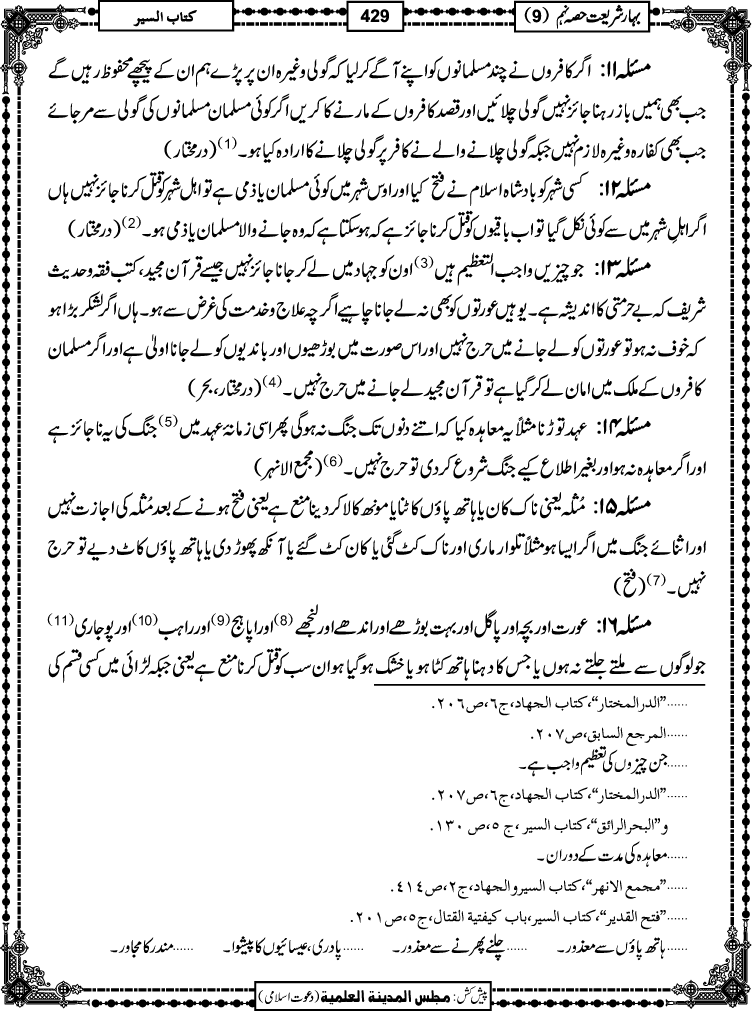 بہار شریعت حصہ نہم (9)
429
کتاب السیر
مسئلہ ۱۱: اگر کافروں نے چند مسلمانوں کو اپنے آگے کر لیا کہ گولی وغیرہ ان پر پڑے ہم ان کے پیچھے محفوظ رہیں گے
جب بھی ہمیں باز رہنا جائز نہیں گولی چلائیں اور قصد کافروں کے مارنے کا کریں اگر کوئی مسلمان مسلمانوں کی گولی سے مر جائے
جب بھی کفارہ وغیرہ لازم نہیں جبکہ گولی چلانے والے نے کافر پر گولی چلانے کا ارادہ کیا ہو۔ (1) (درمختار)
مسئلہ ۱۲: کسی شہر کو بادشاہ اسلام نے فتح کیا اور اوس شہر میں کوئی مسلمان یا ذمی ہے تو اہل شہر کو قتل کرنا جائز نہیں ہاں
اگر اہلِ شہر میں سے کوئی نکل گیا تو اب باقیوں کو قتل کرنا جائز ہے کہ ہو سکتا ہے کہ وہ جانے والا مسلمان یا ذمی ہو۔ (2) (درمختار)
مسئلہ ۱۳: جو چیزیں واجب التعظیم ہیں (3) اون کو جہاد میں لے کر جانا جائز نہیں جیسے قرآن مجید، کتب فقہ و حدیث
شریف کہ بے حرمتی کا اندیشہ ہے۔ یوہیں عورتوں کو بھی نہ لے جانا چاہیے اگرچہ علاج و خدمت کی غرض سے ہو۔ ہاں اگر لشکر بڑا ہو
کہ خوف نہ ہو تو عورتوں کو لے جانے میں حرج نہیں اور اس صورت میں بوڑھیوں اور باندیوں کو لے جانا اولیٰ ہے اور اگر مسلمان
کافروں کے ملک میں امان لے کر گیا ہے تو قرآن مجید لے جانے میں حرج نہیں۔ (4) (درمختار، بحر)
مسئلہ ۱۴: عہد توڑنا مثلاً یہ معاہدہ کیا کہ اتنے دنوں تک جنگ نہ ہوگی پھر اسی زمانۂ عہد میں (5) جنگ کی یہ ناجائز ہے
اور اگر معاہدہ نہ ہو اور بغیر اطلاع کیے جنگ شروع کردی تو حرج نہیں۔ (6) (مجمع الانہر)
مسئلہ ۱۵: مُثلہ یعنی ناک کان یا ہاتھ پاؤں کاٹنا یا مونھ کالا کر دینا منع ہے یعنی فتح ہونے کے بعد مُثلہ کی اجازت نہیں
اور اثنائے جنگ میں اگر ایسا ہو مثلاً تلوار ماری اور ناک کٹ گئی یا کان کٹ گئے یا آنکھ پھوڑ دی یا ہاتھ پاؤں کاٹ دیے تو حرج
نہیں۔ (7) (فتح)
مسئلہ ۱۶: عورت اور بچہ اور پاگل اور بہت بوڑھے اور اندھے اور لنجھے (8) اور اپاہج (9) اور راہب (10) اور پوجاری (11)
جو لوگوں سے ملتے جلتے نہ ہوں یا جس کا دہنا ہاتھ کٹا ہو یا خشک ہو گیا ہو ان سب کو قتل کرنا منع ہے یعنی جبکہ لڑائی میں کسی قسم کی
......"الدرالمختار"،کتاب الجهاد،ج٦،ص٢٠٦.
......المرجع السابق،ص٢٠٧.
......جن چیزوں کی تعظیم واجب ہے۔
......"الدرالمختار"،کتاب الجهاد،ج٦،ص٢٠٧.
و"البحرالرائق"،کتاب السیر ،ج ٥،ص ١٣٠.
......معاہدہ کی مدت کے دوران۔
......"مجمع الانهر"،کتاب السیروالجهاد،ج٢،ص٤١٤.
......"فتح القدیر"،کتاب السیر،باب کیفتیة القتال،ج٥،ص٢٠١.
......ہاتھ پاؤں سے معذور۔ ......چلنے پھرنے سے معذور۔ ......پادری،عیسائیوں کا پیشوا۔ ......مندر کا مجاور۔
پیش کش: مجلس المدینة العلمیة (دعوت اسلامی)